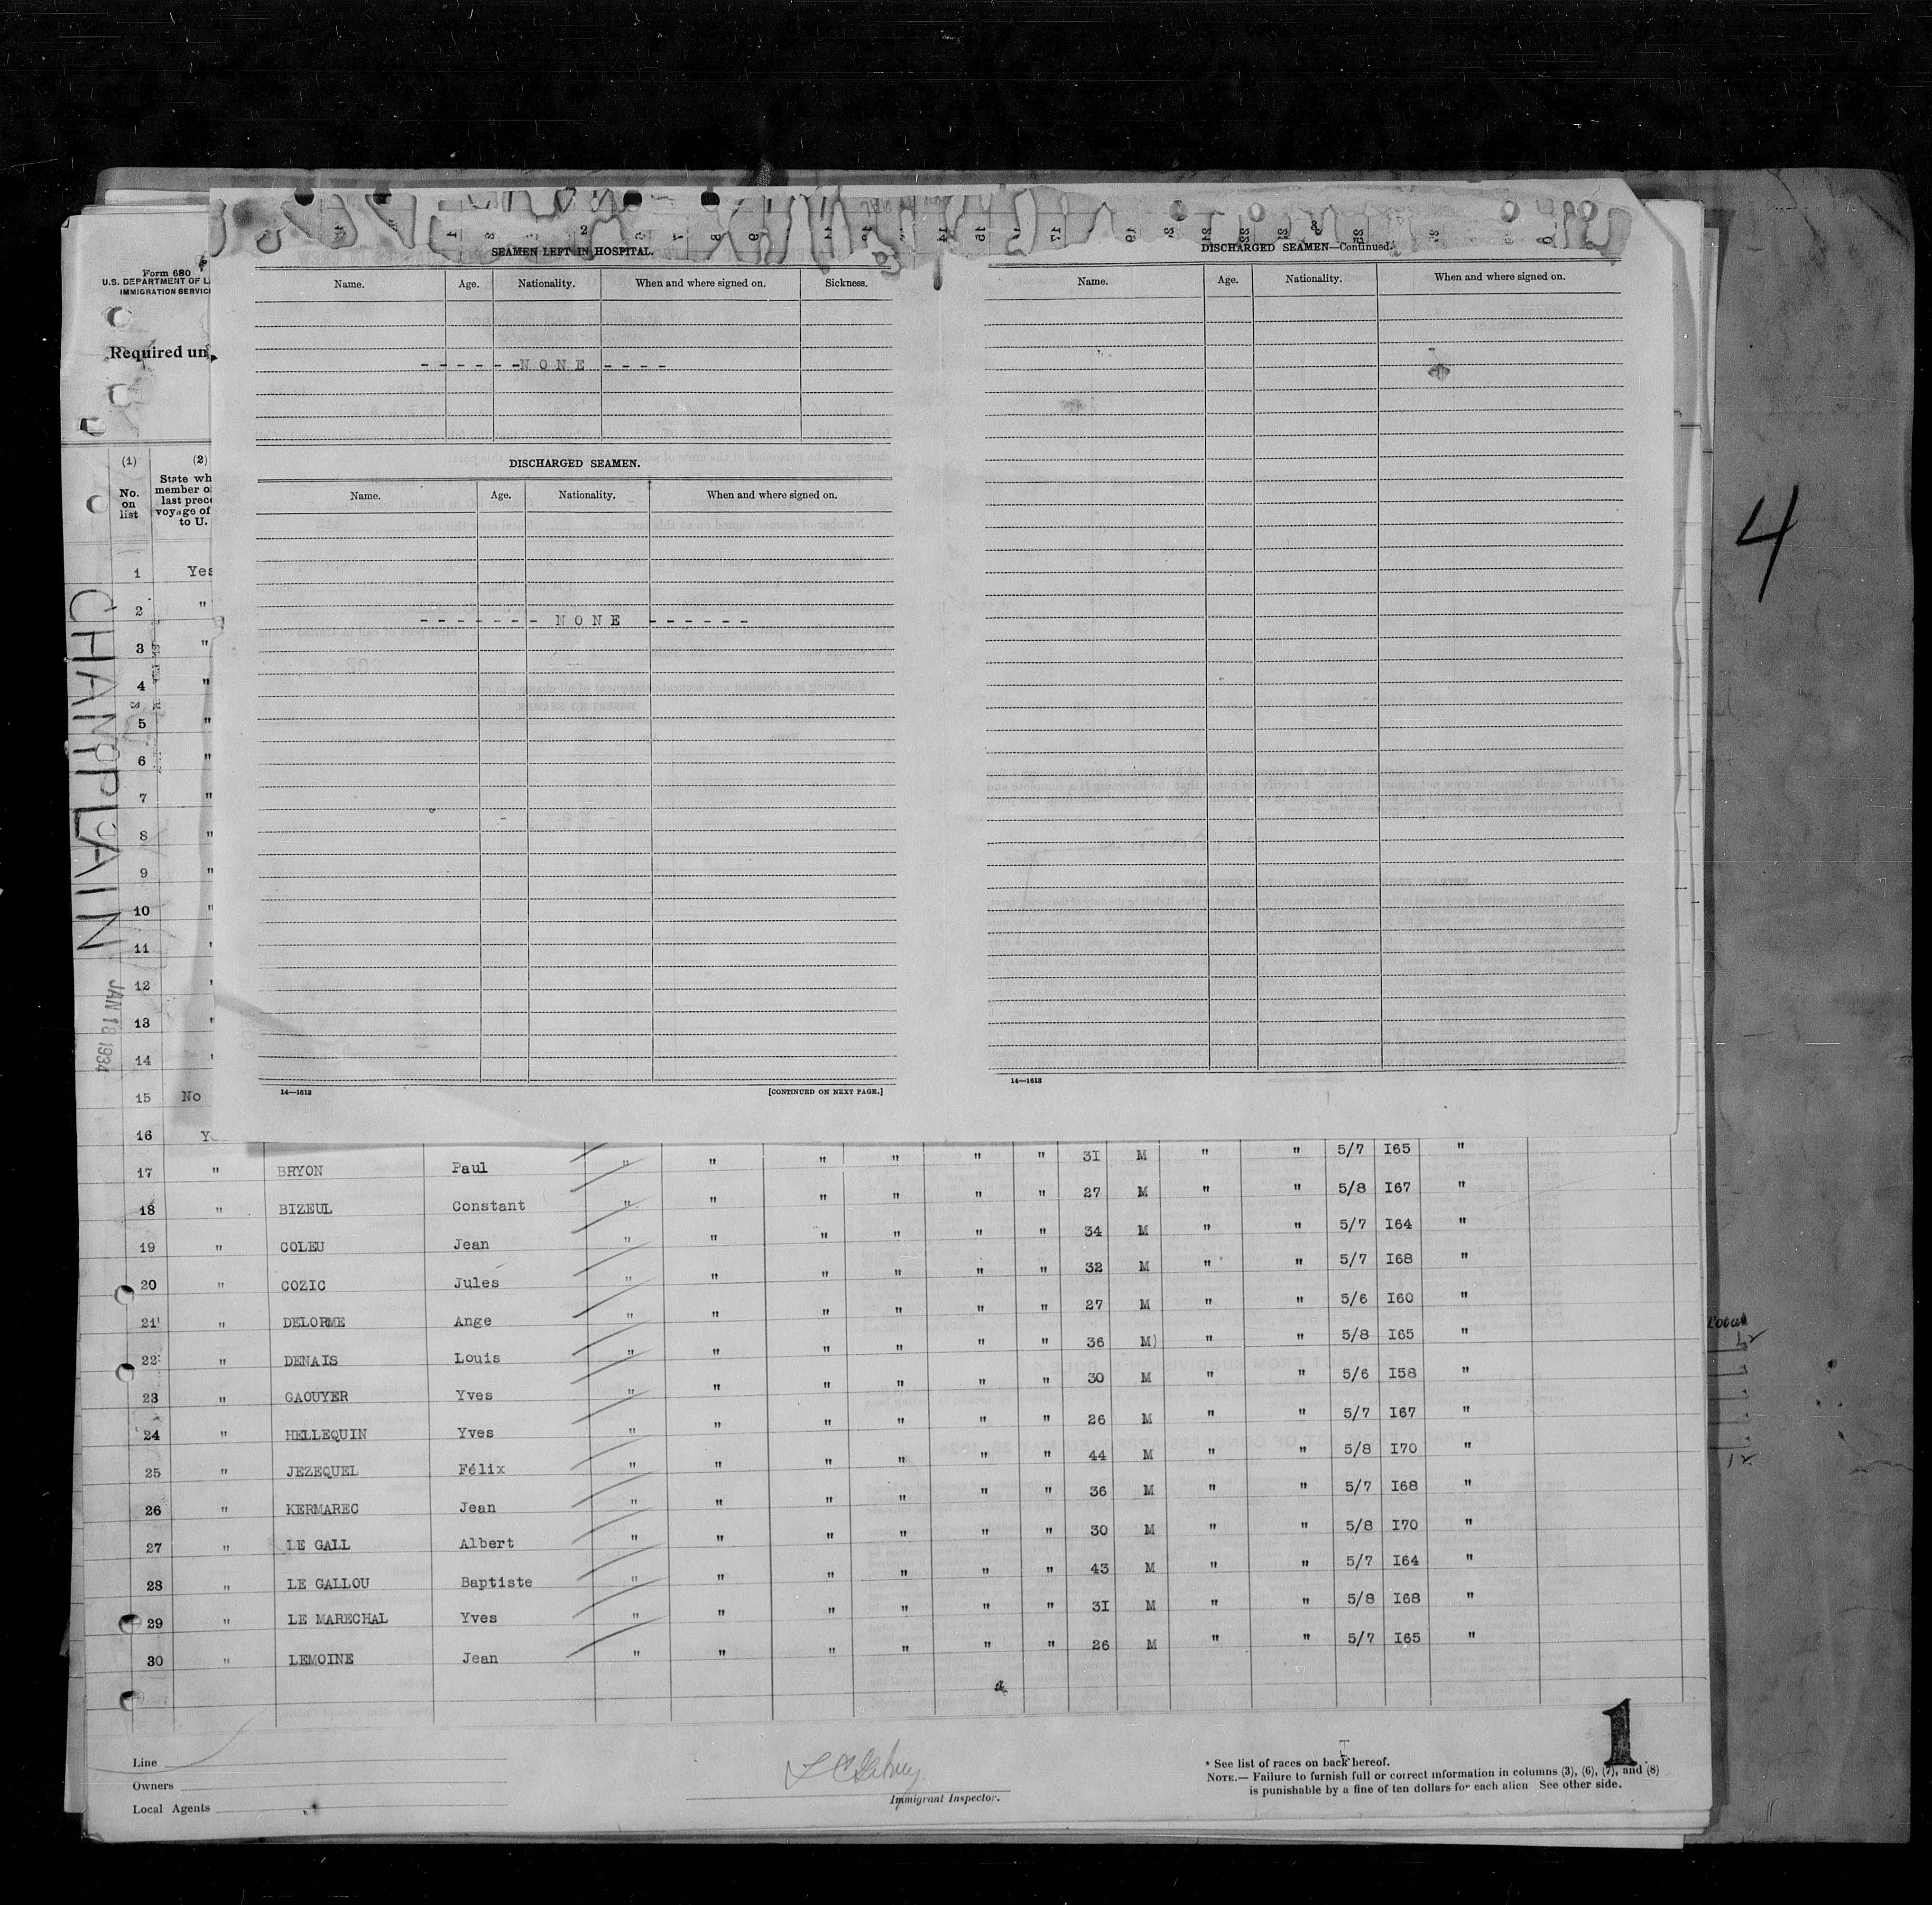 SEAMEN LEFT IN HOSPITAL.
Name. Age. Nationality. When and where signed on. Sickness.
- - - - - -N O N E - - - -
DISCHARGED SEAMEN.
Name. Age. Nationality. When and where signed on.
- - - - - - - N O N E - - - - - -
14—1613 [CONTINUED ON NEXT PAGE.]
DISCHARGED SEAMEN—Continued.
Name. Age. Nationality. When and where signed on.
14—1613
Form 680
U.S. DEPARTMENT OF L
IMMIGRATION SERVIC
Required un
(1) (2)
No. on list
State wh
member o
last prec
voyage of
to U.
1 Yes
2 "
3 "
4 "
5 "
6 "
7 "
8 "
9 "
10 "
11 "
12 "
13 "
14 "
15 No
16 Y
17 " BRYON Paul " " " " " " 3I M " " 5/7 I65 "
18 " BIZEUL Constant " " " " " " 27 M " " 5/8 I67 "
19 " COLEU Jean " " " " " " 34 M " " 5/7 I64 "
20 " COZIC Jules " " " " " " 32 M " " 5/7 I68 "
21 " DELORME Ange " " " " " " 27 M " " 5/6 I60 "
22 " DENAIS Louis " " " " " " 36 M) " " 5/8 I65 "
23 " GAOUYER Yves " " " " " " 30 M " " 5/6 I58 "
24 " HELLEQUIN Yves " " " " " " 26 M " " 5/7 I67 "
25 " JEZEQUEL Félix " " " " " " 44 M " " 5/8 I70 "
26 " KERMAREC Jean " " " " " " 36 M " " 5/7 I68 "
27 " LE GALL Albert " " " " " " 30 M " " 5/8 I70 "
28 " LE GALLOU Baptiste " " " " " " 43 M " " 5/7 I64 "
29 " LE MARECHAL Yves " " " " " " 3I M " " 5/8 I68 "
30 " LEMOINE Jean " " " " " " 26 M " " 5/7 I65 "
CHAMPLAIN
JAN 18 1934
4
Total
12
12
1
Line
Owners
Local Agents
Immigrant Inspector.
* See list of races on back hereof.
NOTE.— Failure to furnish full or correct information in columns (3), (6), (7), and (8)
is punishable by a fine of ten dollars for each alien See other side.